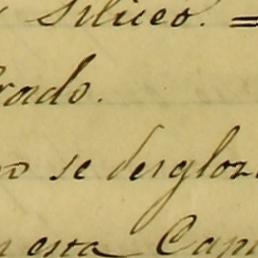 Silueo. =
rado.
se desgloz
esta Capi